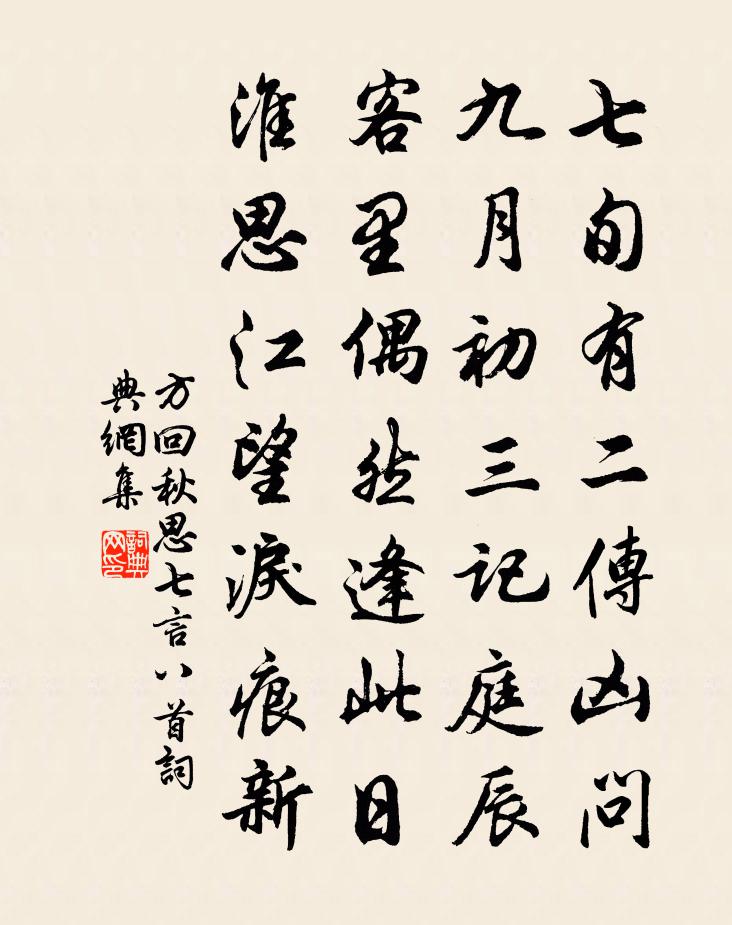 七旬有二傳凶問
九月初三記庭辰
客里偶然逢此日
淮思江望淚痕新
方回秋思七言八首詞
典網集
詞典
网印